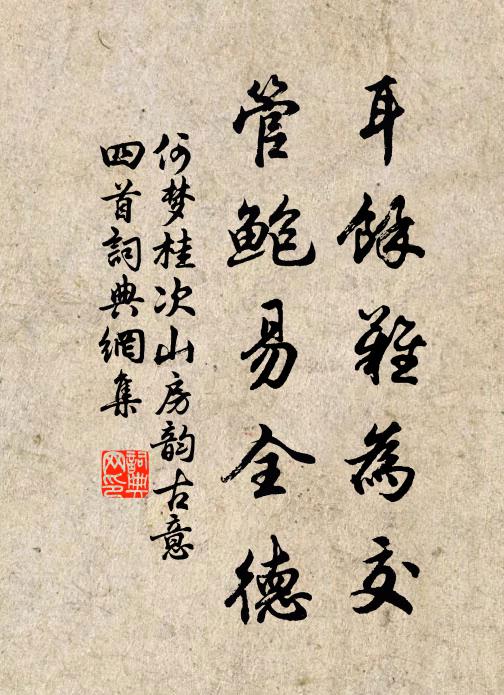 耳餘難為交
管鮑易全德
何梦桂次山房韵古意
四首詞典網集
詞典网印